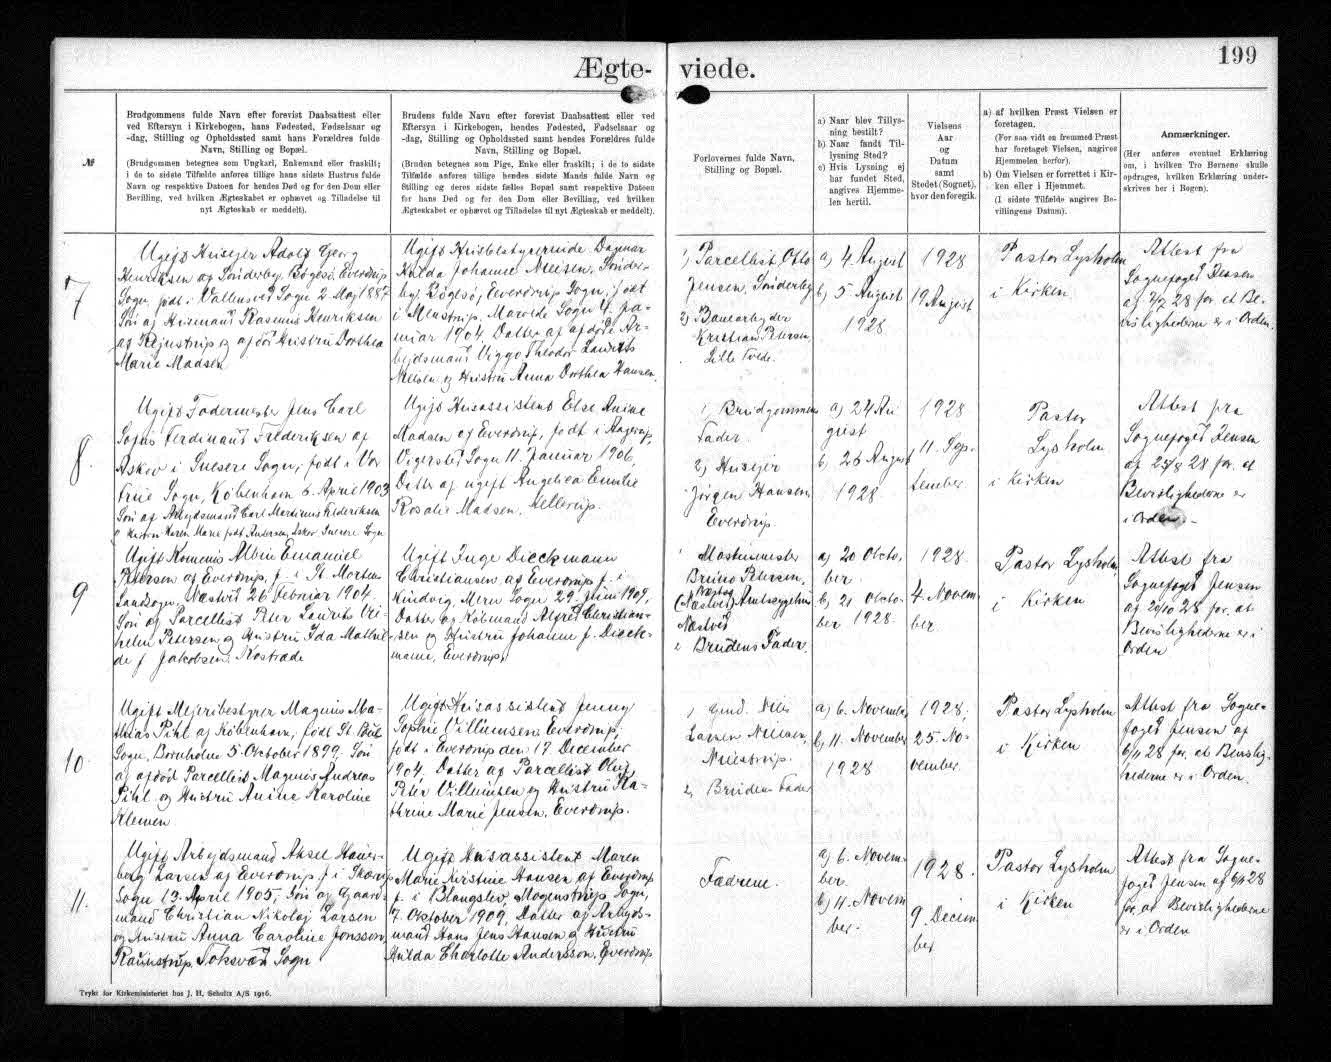 Ægte- viede.
199
№
Brudgommens fulde Navn efter forevist Daabsattest eller
ved Eftersyn i Kirkebogen, hans Fødested, Fødselsaar og
-dag, Stilling og Opholdssted samt hans Forældres fulde
Navn, Stilling og Bopæl.
(Brudgommen betegnes som Ungkarl, Enkemand eller fraskilt;
i de to sidste Tilfælde anføres tillige hans sidste Hustrus fulde
Navn og respektive Datoen for hendes Død og for den Dom eller
Bevilling, ved hvilken Ægteskabet er ophævet og Tilladelse til
nyt Ægteskab er meddelt).
Brudens fulde Navn efter forevist Daabsattest eller ved
Eftersyn i Kirkebogen, hendes Fødested, Fødselsaar og
-dag, Stilling og Opholdssted samt hendes Forældres fulde
Navn, Stilling og Bopæl.
(Bruden betegnes som Pige, Enke eller fraskilt; i de to sidste
Tilfælde anføres tillige hendes sidste Mands fulde Navn og
Stilling og deres sidste fælles Bopæl samt respektive Datoen
for hans Død og for den Dom eller Bevilling, ved hvilken
Ægteskabet er ophævet og Tilladelse til nyt Ægteskab er meddelt).
Forlovernes fulde Navn,
Stilling og Bopæl.
a) Naar blev Tillys-
ning bestilt?
b) Naar fandt Til-
lysning Sted?
c) Hvis Lysning ej
har fundet Sted,
angives Hjemme-
len hertil.
Vielsens
Aar
og
Datum
samt
Stedet (Sognet),
hvor den foregik.
a) af hvilken Præst Vielsen er
foretagen.
(For saa vidt en fremmed Præst
har foretaget Vielsen, angives
Hjemmelen herfor).
b) Om Vielsen er forrettet i Kir-
ken eller i Hjemmet.
(I sidste Tilfælde angives Be-
villingens Datum).
Anmærkninger.
(Her anføres eventuel Erklæring
om, i hvilken Tro Børnene skulle
opdrages, hvilken Erklæring under-
skrives her i Bogen).
7
Ugift Husejer Adolf Georg
Henriksen af Sønderby, Bøgesø, Everdrup
Sogn, født i Vallensved Sogn 2 Maj 1887
Søn af Husmand Rasmus Henriksen
af Rejnstrup og afdød Hustru Dorthea
Marie Madsen
Ugift Husbestyrerinde Dagmar
Hulda Johanne Nielsen, Sønder-
by, Bøgesø, Everdrup Sogn, født
i Menstrup, Marvede Sogn 4. Ja-
nuar 1904. Datter af afdøde Ar-
bejdsmand Viggo Theodor Laurits
Nielsen og Hustru Anna Dorthea Hansen.
1) Parcellist Otto
Jensen, Sønderby
2) Banearbejder
Kristian Petersen
Lille Svede.
a) 4 August
b) 5 August
1928
1928
19 August
Pastor Lysholm
i Kirken
Attest fra
Sognefoged Jensen
af 2/8 28 for at Be-
vislighederne er i Orden.
8.
Ugift Fodermester Jens Carl
Sofus Ferdinand Frederiksen af
Askov i Snesere Sogn, født i Vor
Frue Sogn, København 6. April 1903
Søn af Arbejdsmand Carl Martinus Frederiksen
og Hustru Karen Marie født Andersen, Askov, Snesere Sogn
Ugift Husassistent Else Anine
Madsen af Everdrup, født i Aagerup,
Vigersted Sogn 11. Januar 1906,
Datter af ugift Angelica Emilie
Rosalie Madsen, Kellerup.
1) Brudgommens
Fader.
2) Husejer
Jørgen Hansen
Everdrup
a) 24 Au
gust
b. 26 August
1928
1928
11. Sep-
tember
Pastor
Lysholm
i Kirken
Attest fra
Sognefoged Jensen
af 25/8 28 for, at
Bevislighederne er
i Orden.
9
Ugift Kommis Albin Emanuel
Petersen af Everdrup, f. i St. Mortens
Landsogn, Næstved 26 Februar 1904.
Søn af Parcellist Peter Laurits Vil-
helm Petersen og Hustru Ida Mathil-
de f. Jakobsen, Rostrade
Ugift Inge Dieckmann
Christiansen af Everdrup f. i
Kindvig, Mern Sogn 29. Juni 1909,
Datter af Købmand Alfred Christian-
sen og Hustru Johanne f. Dieck-
mann, Everdrup.
1 Maskinmester
Bruno Petersen,
Præstø
(Næstved) Amtssygehus
Næstved
2 Brudens Fader.
a) 20 Okto-
ber.
b) 21 Okto-
ber 1928.
1928.
4. Novem
ber
Pastor Lysholm,
i Kirken
Attest fra
Sognefoged Jensen
af 20/10 28 for, at
Bevislighederne er i
Orden
10.
Ugift Mejeribestyrer Magnus Ma-
thias Pihl af København, født St. Pouls
Sogn, Bornholm 5. Oktober 1899, Søn
af afdød Parcellist Magnus Andreas
Pihl og Hustru Anine Karoline
Klemen
Ugift Husassistent Jenny
Sophie Villumsen, Everdrup,
født i Everdrup den 17 December
1904, Datter af Parcellist Oluf
Peter Villumsen og Hustru Ka-
thrine Marie Jensen, Everdrup.
1, Gmd. Niels
Larsen Nielsen,
2, Brudens Fader
a) 6. November
b) 11. November
1928
1928,
25. No-
vember.
Pastor Lysholm
i Kirken
Attest fra Sogne-
foged Jensen af
6/11 28 for, at Bevislig-
hederne er i Orden.
11.
Ugift Arbejdsmand Aksel Hauer-
berg Larsen af Everdrup f. i Skærup
Sogn 13. April 1905, Søn af Gaard-
mand Christian Nikolaj Larsen
og Hustru Anna Caroline Jonsson,
Raunstrup, Toksværd Sogn
Ugift Husassistent Maren
Marie Kirstine Hansen af Everdrup
f. i Blangslev, Mogenstrup Sogn,
7. Oktober 1909, Datter af Arbejds-
mand Hans Jens Hansen og Hustru
Hulda Charlotte Andersson, Everdrup
Fædrene.
a) 6. Novem-
ber.
b) 11. Novem
ber.
1928.
9. Decem
ber
Pastor Lysholm
i Kirken
Attest fra Sogne-
foged Jensen af 6/11 28
for, at Bevislighederne
er i Orden
Trykt for Kirkeministeriet hos J. H. Schultz A/S 1916.